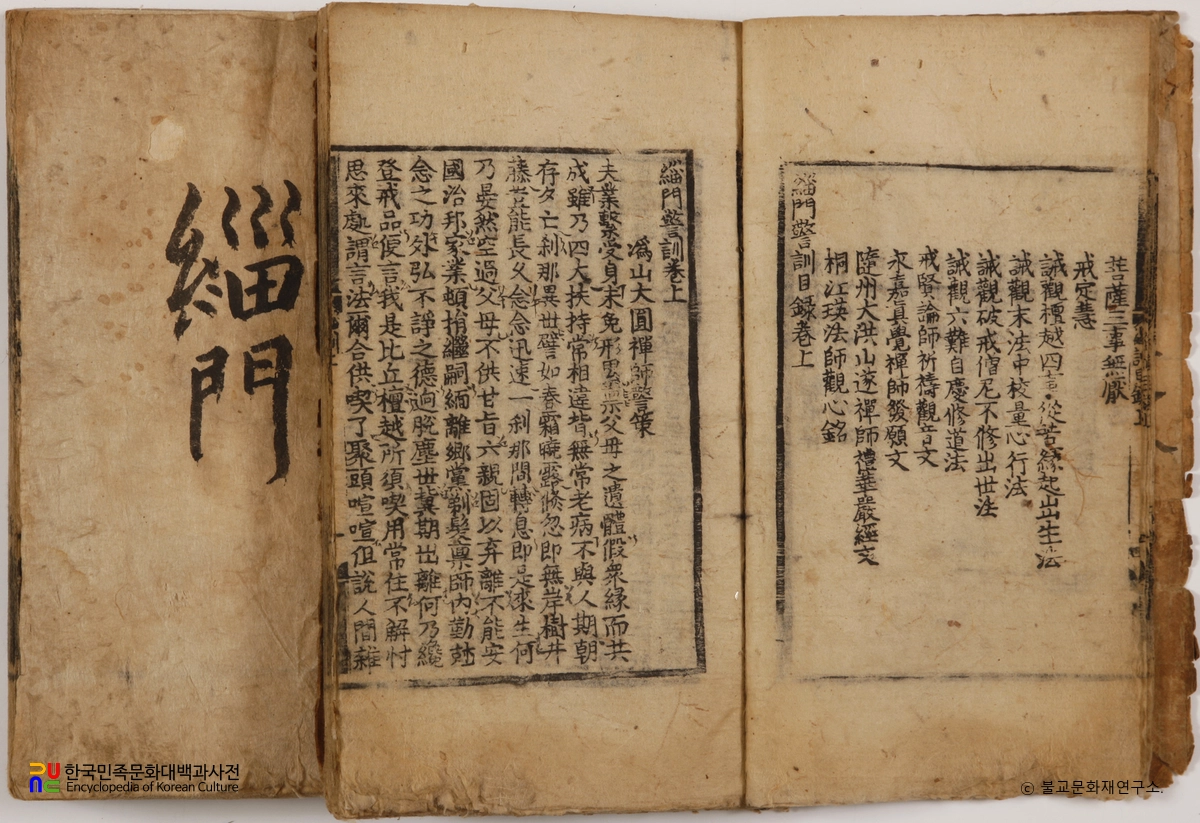 緇門
菩薩三事無厭
戒定慧
誡觀檀越四事從苦緣起出生法
誡觀末法中校量心行法
誡觀破戒僧尼不修出世法
誡觀六難自慶修道法
戒賢論師祈禱觀音文
永嘉眞覺禪師發願文
隨州大洪山遂禪師禮華嚴經文
桐江瑛法師觀心銘
緇門警訓目錄卷上
緇門警訓卷上
潙山大圓禪師警策
夫業繫受身未免形累禀父母之遺體假衆緣而共
成雖乃四大扶持常相違背無常老病不與人期朝
存夕亡刹那異世譬如春霜曉露倏忽即無岸樹井
藤豈能長久念念迅速一刹那間轉息即是來生何
乃晏然空過父母不供甘旨六親固以弃離不能安
國治邦家業頓捐繼嗣緬離鄕黨剃髮稟師內勤尅
念之功外弘不諍之德逈脫塵世冀期出離何乃纔
登戒品便言我是比丘檀越所須喫用常住不解忖
思來處謂言法爾合供喫了聚頭喧喧但說人間雜
한국민족문화대백과사전
Encyclopedia of Korean Culture
ⓒ 불교문화재연구소.